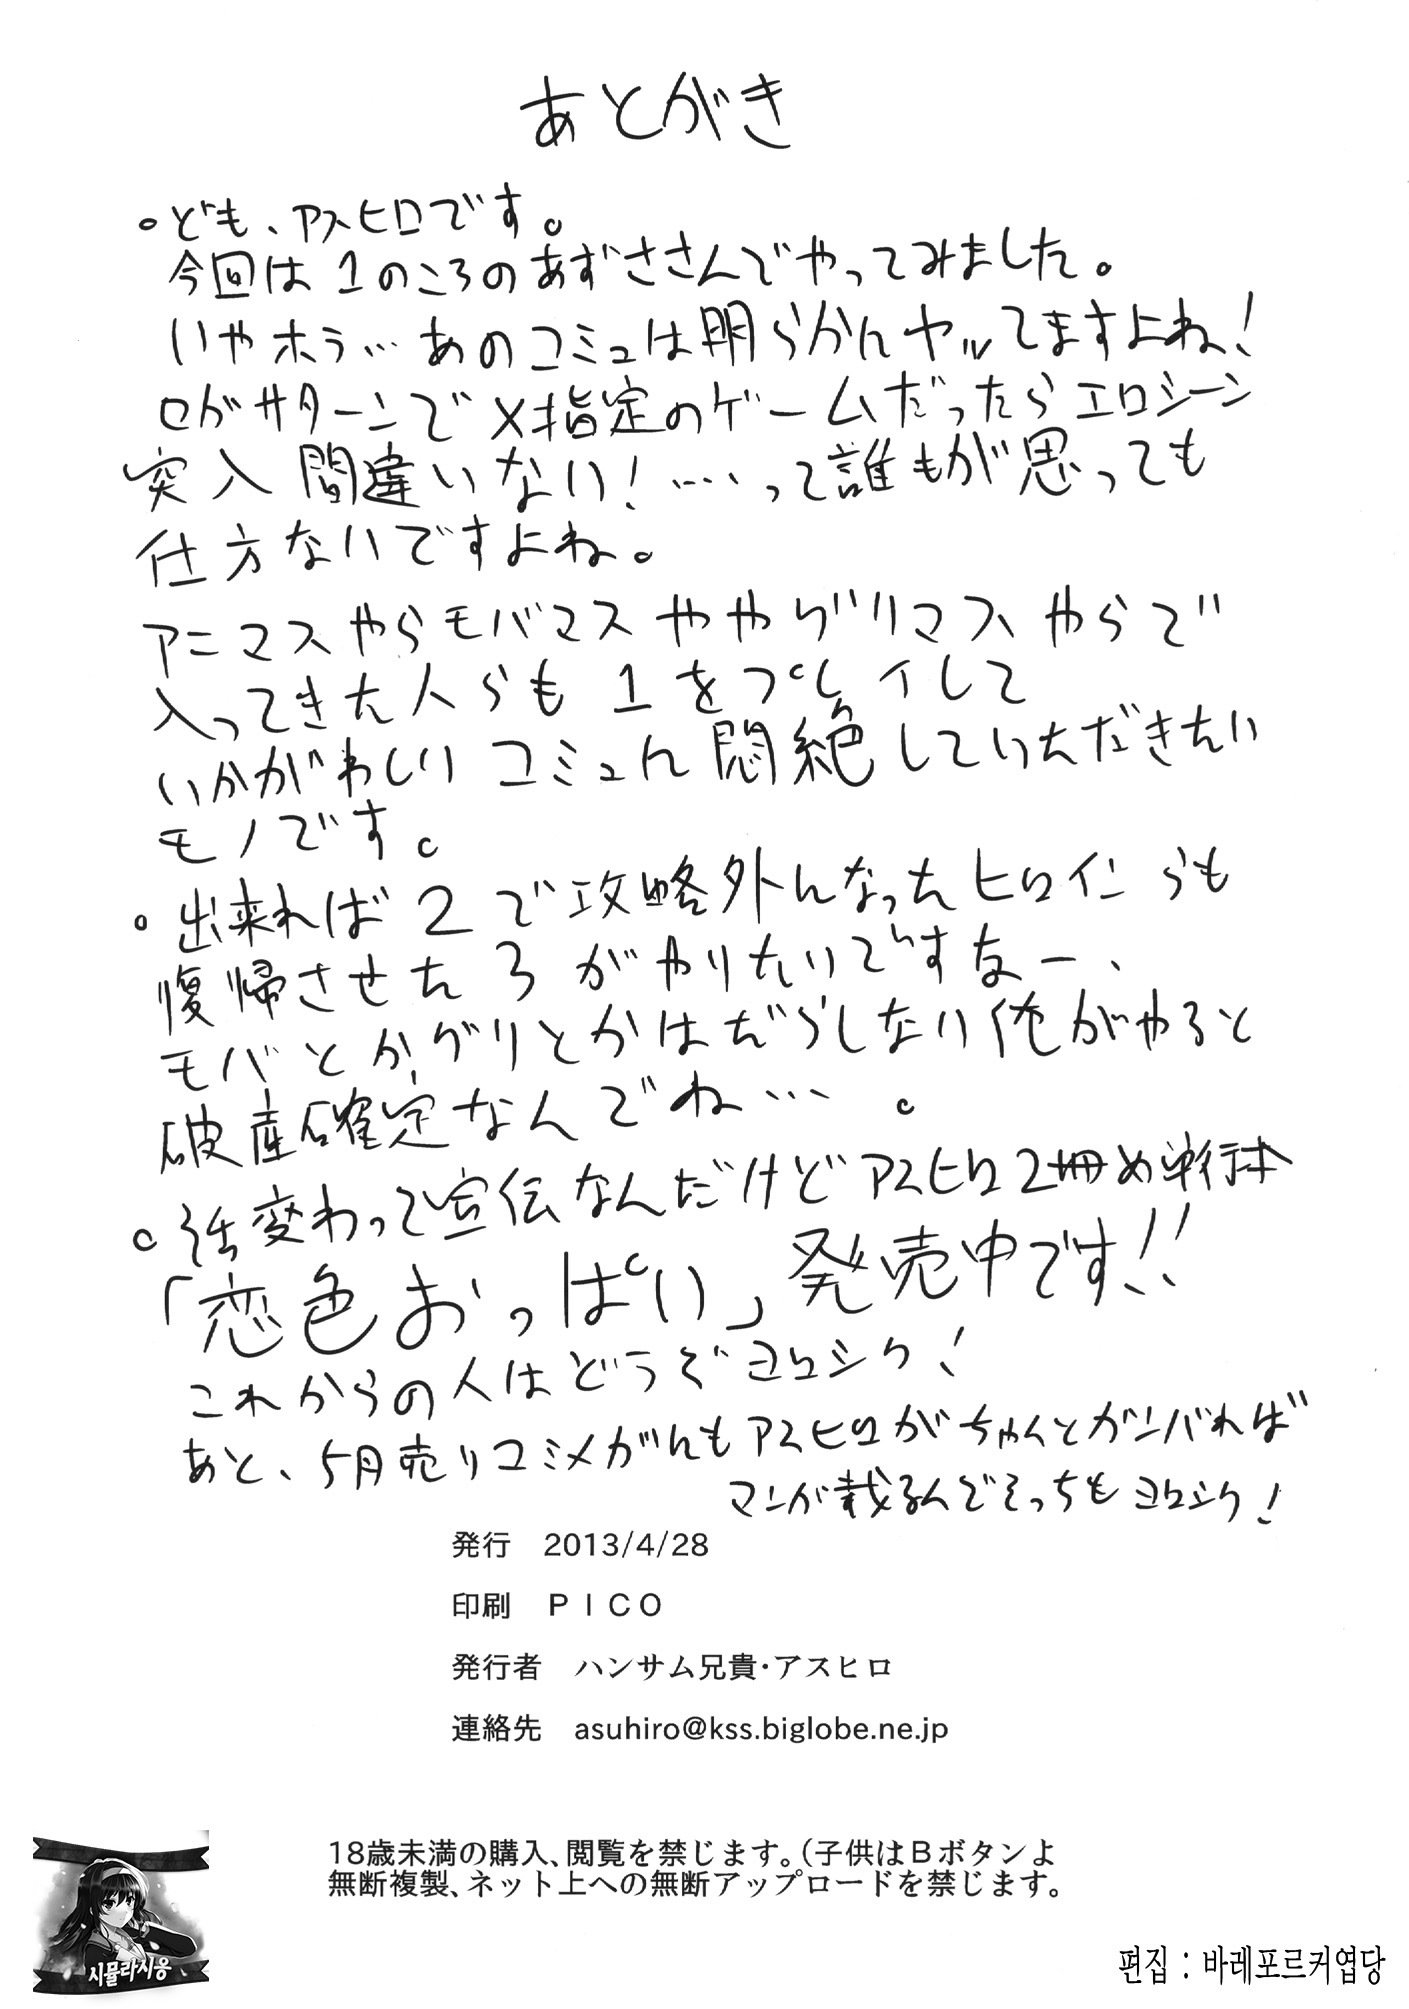 あとがき
。ども、アスヒロです。
今回は1のころのあずささんでやってみました。
いやホラ…あのコミュは明らかにヤッてますよね！
セガサターンでX指定のゲームだったらエロシーン
突入間違いない！……って誰もが思っても
仕方ないですよね。
アニマスやらモバマスややグリマスやらで
入ってきた人らも1をプレイして
いかがわしいコミュに悶絶していただきたい
モノです。
。出来れば2で攻略外になったヒロインらも
復帰させた3がやりたいですなー、
モバとかグリとかはだらしない俺がやると
破産確定なんでね…。
。話変わって宣伝なんだけどアスヒロ2冊め単行本
「恋色おっぱい」発売中です!!
これからの人はどうぞヨロシク！
あと、5月売りコミメガにもアスヒロがちゃんとガンバれば
マンガ載るんでそっちもヨロシク！
発行　2013/4/28
印刷　ＰＩＣＯ
発行者　ハンサム兄貴・アスヒロ
連絡先　asuhiro@kss.biglobe.ne.jp
18歳未満の購入、閲覧を禁じます。（子供はＢボタンよ
無断複製、ネット上への無断アップロードを禁じます。
시뮬라시옹
편집 : 바레포르커엽당